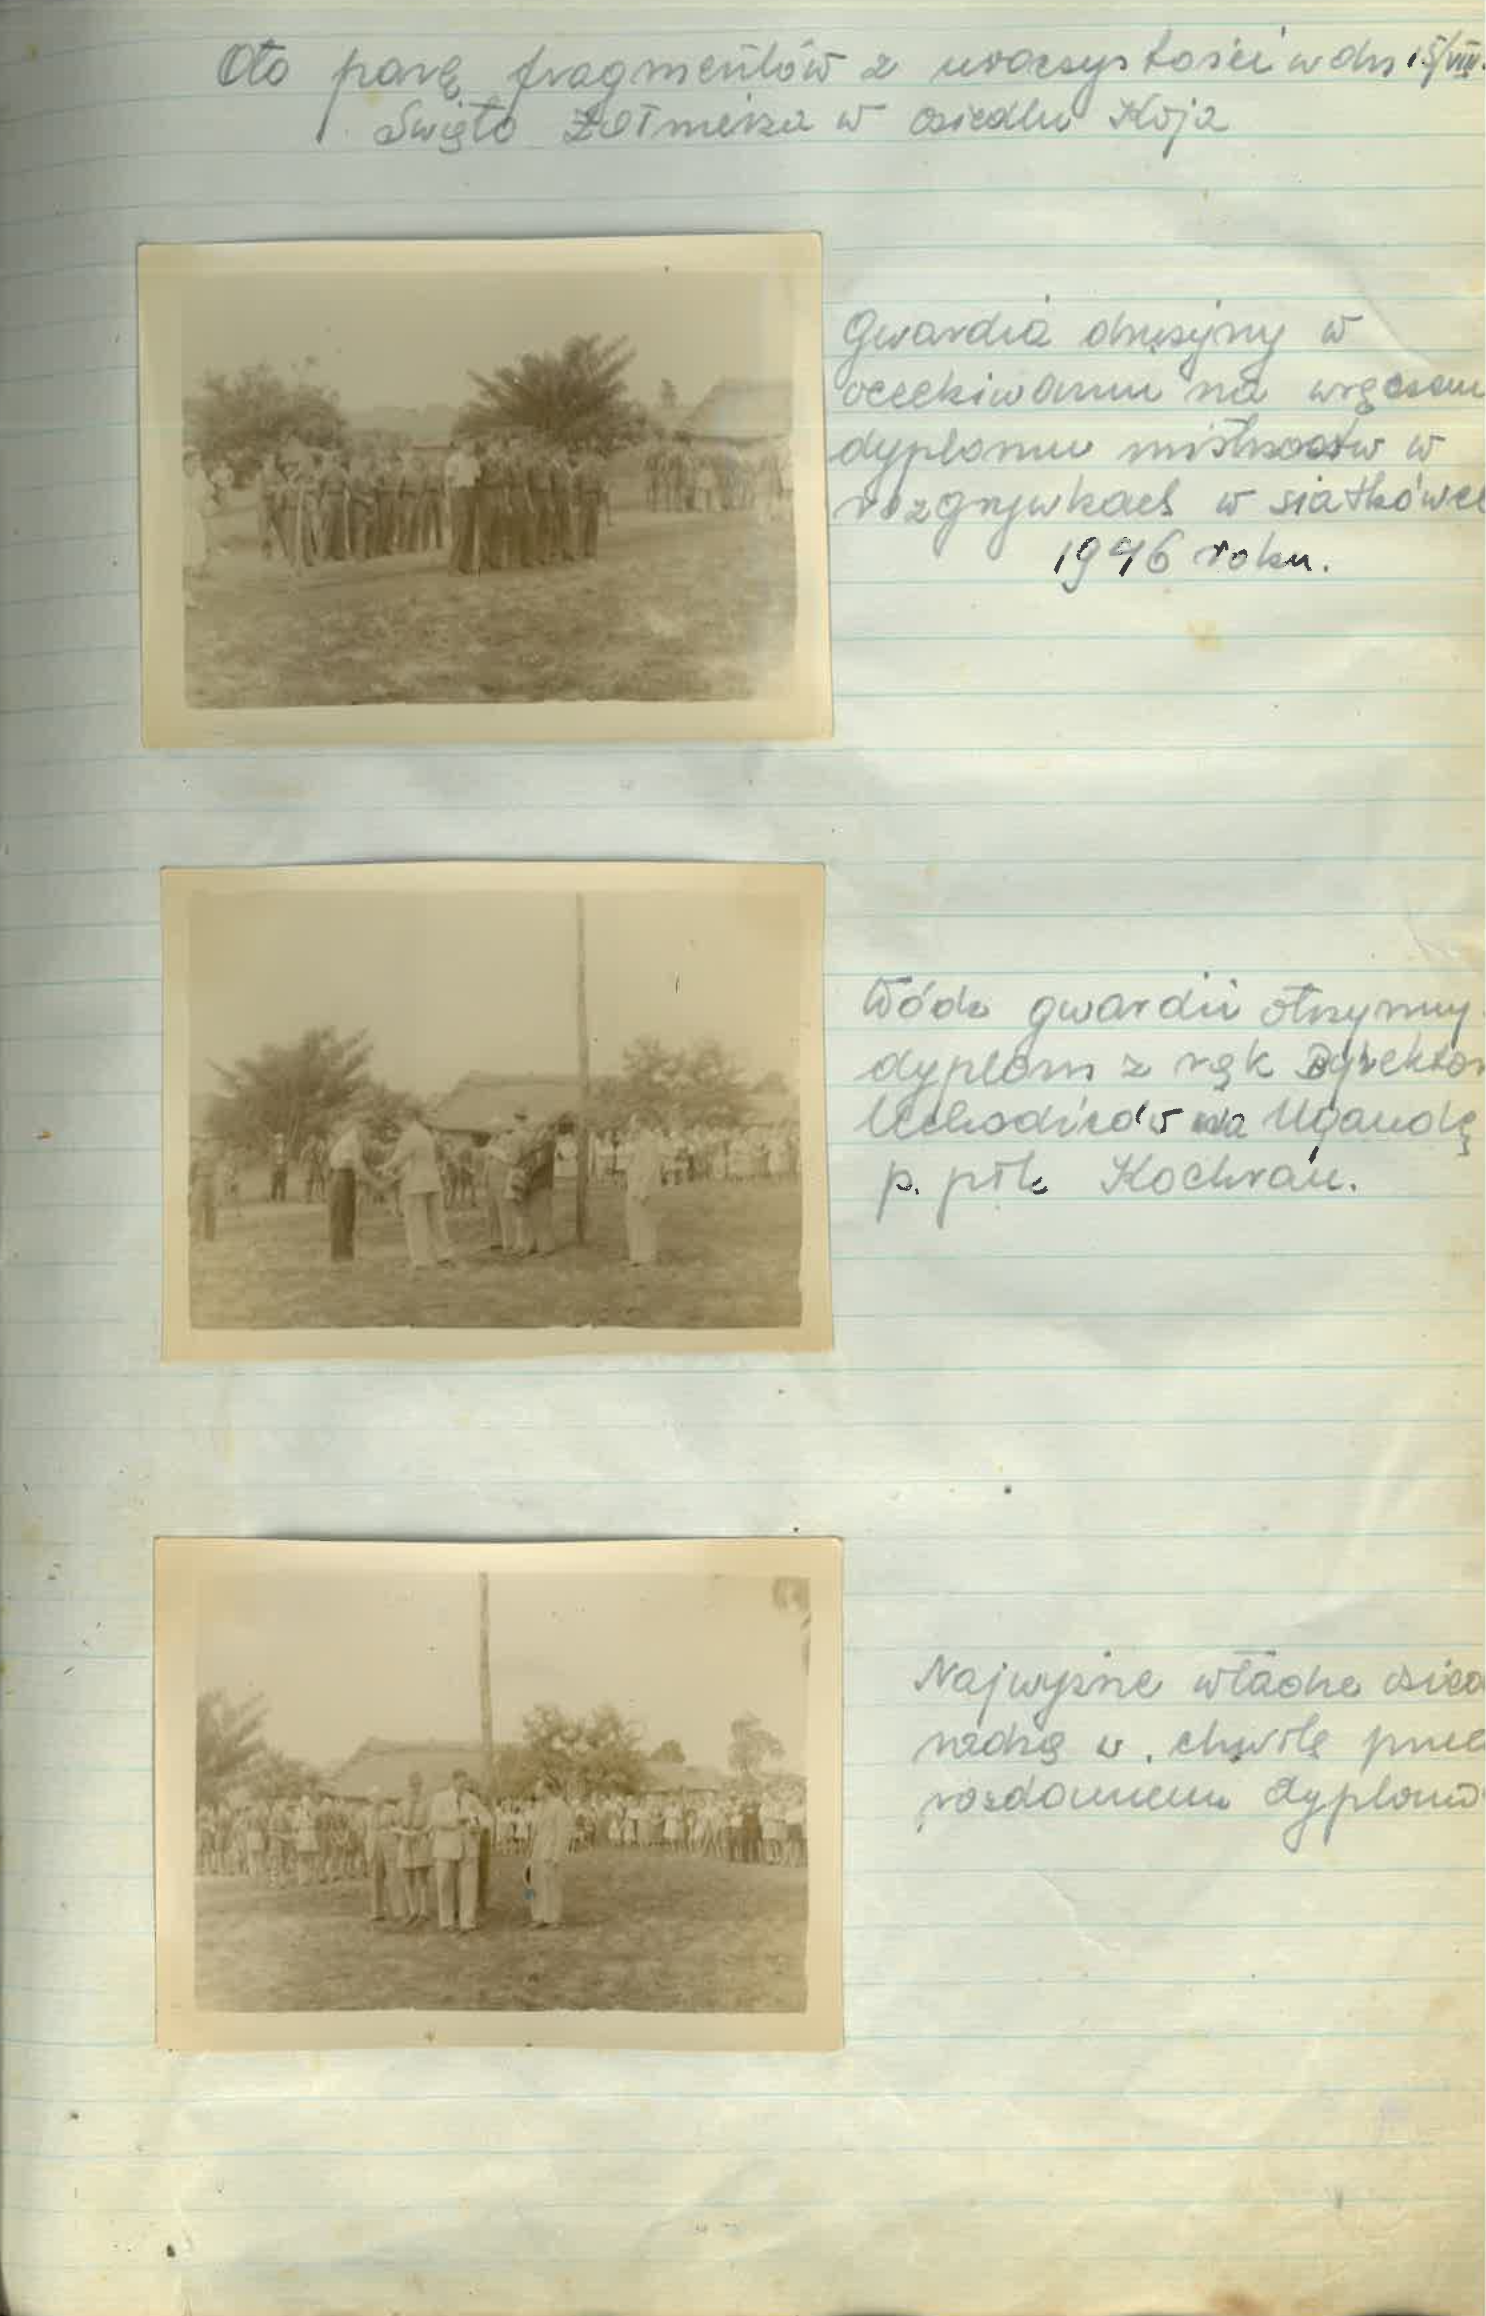 Oto parę fragmentów z uroczystości w dn 15/VIII.
Święto Żołnierza w osiedlu Koja
Gwardia drużyny w
oczekiwaniu na wręczeni
dyplomu mistrzostw w
rozgrywkach w siatkówce
1946 roku.
Wódz gwardii otrzymuj
dyplom z rąk Dyrektor
Uchodźców na Ugandę
p. płk Kochran.
Najwyższe władze osied
radzą w chwilę przed
rozdaniem dyplomó